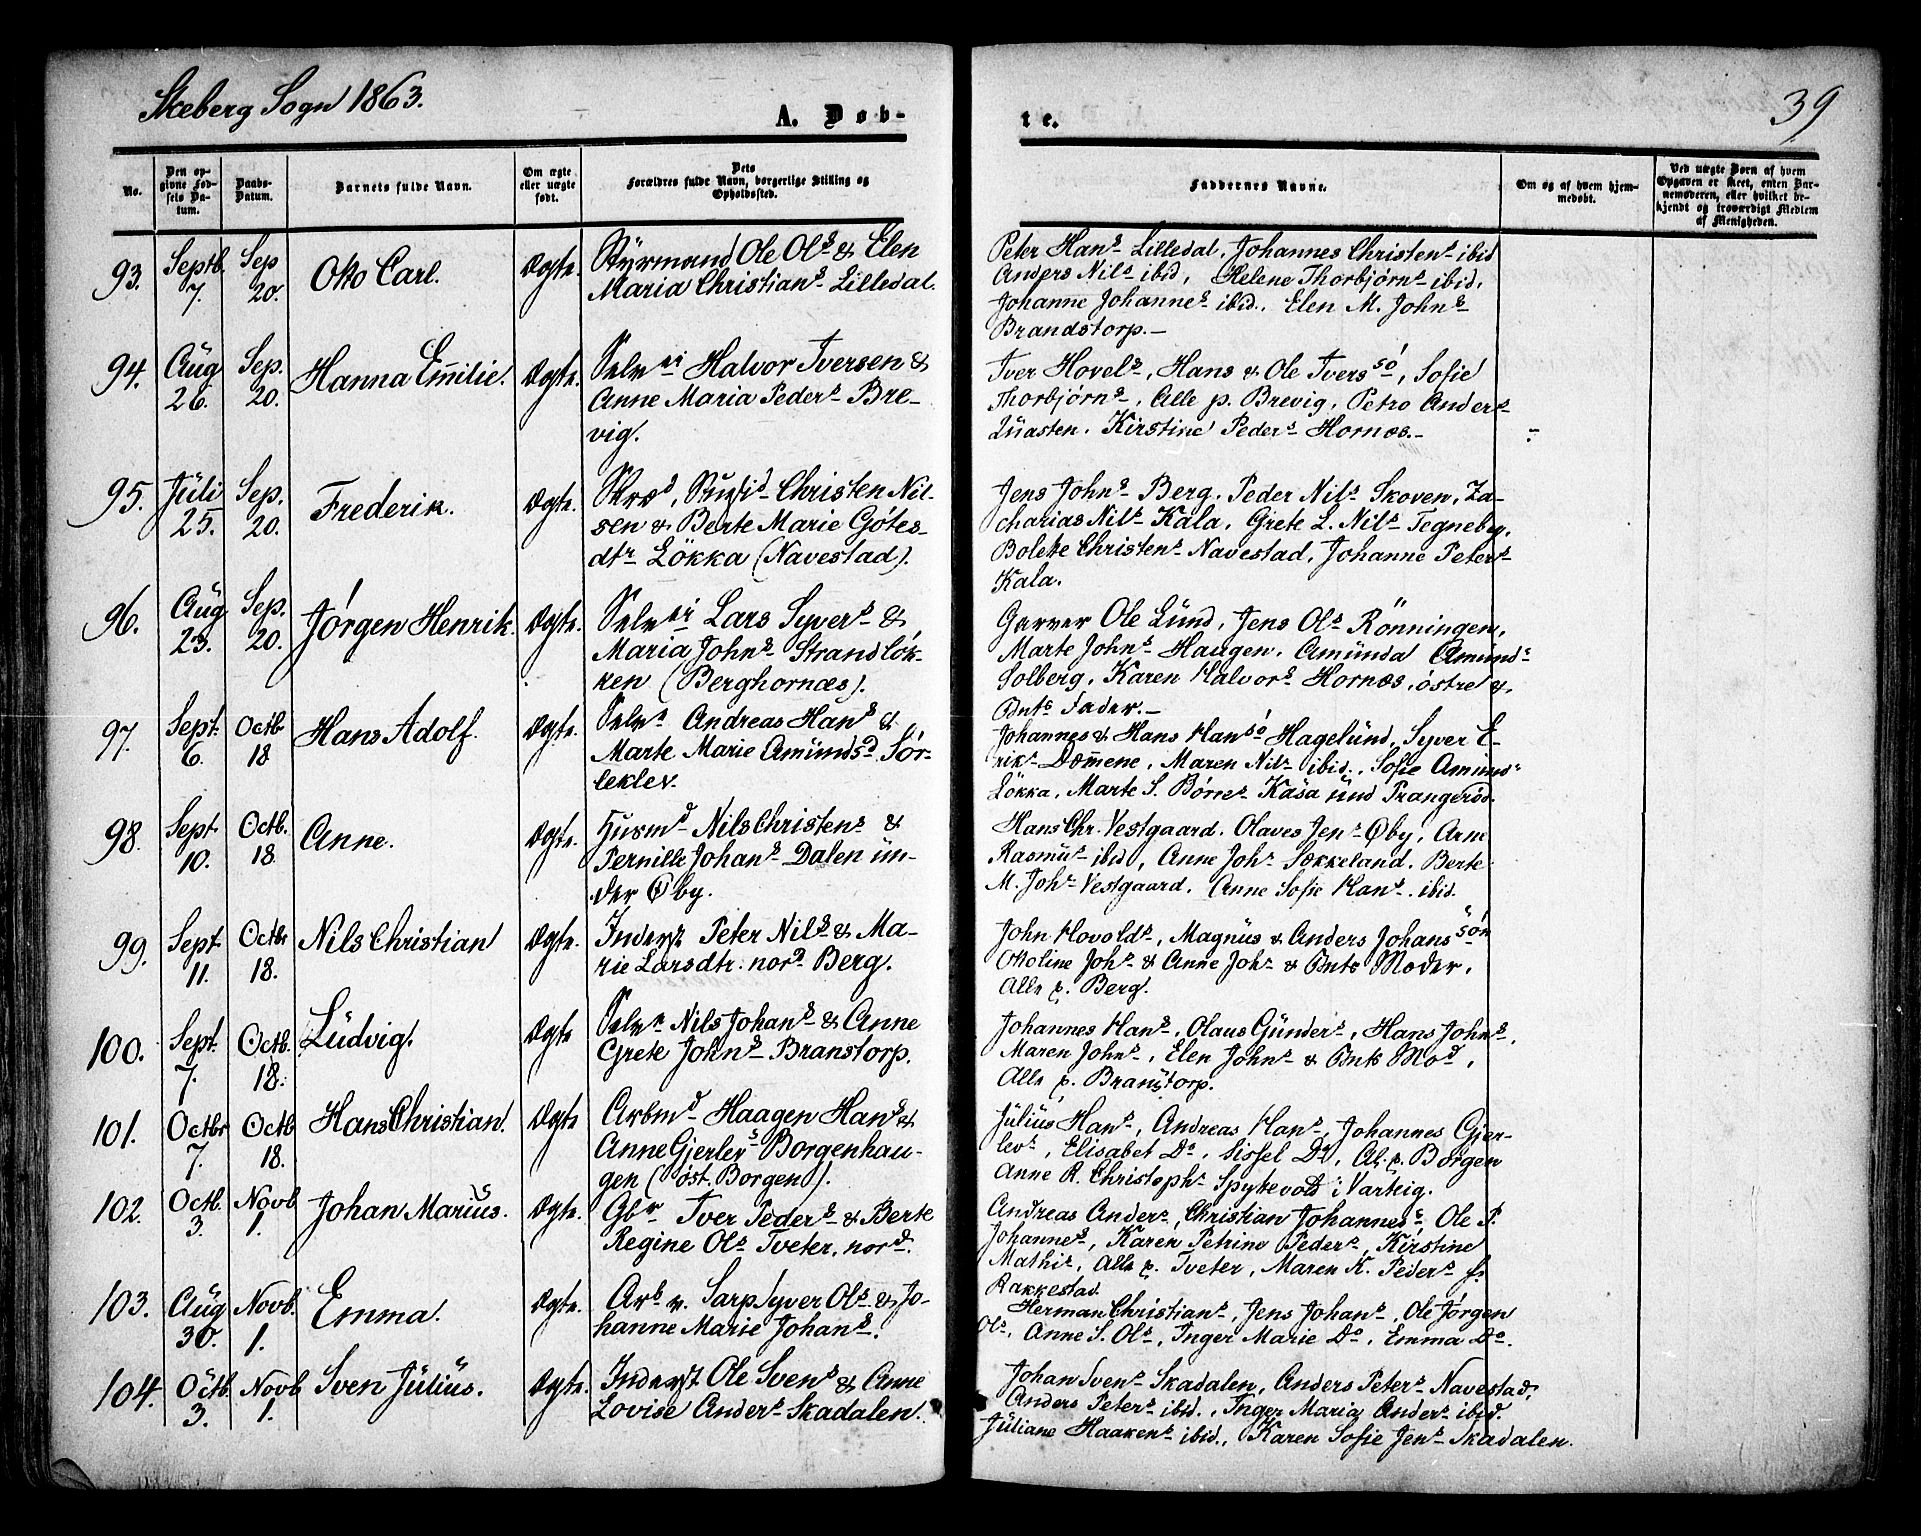 Skeberg Sogn 1863.
A. Døb-
te.
39
No.
Den op-
givne Fød-
sels Da-
tum.
Daabs-
Datum.
Barnets fulde Navn.
Om ægte
eller uægte
født.
Dets
Forældres fulde Navn, borgerlige Stilling og
Opholdssted.
Faddernes Navne.
Om og af hvem hjem-
medøbt.
Ved uægte Børn af hvem
Opgaven er skeet, enten Bar-
nemoderen, eller hvilket be-
kjendt og troværdigt Medlem
af Menigheden.
93. Septb. 7. Sep 20. Otto Carl. Ægte.
Styrmand Ole Ols & Elen
Maria Christians Lilledal.
Peter Hans Lilledal, Johannes Christens ibid
Anders Nils ibid, Helene Thorbjørns ibid,
Johanne Johannes ibid. Elen M. Johns
Brandstorp.—
94. Aug 26. Sep. 20. Hanna Emilie. Ægte.
Selvei Halvor Iversen &
Anne Maria Peders Bre-
vig.
Iver Hovels, Hans & Ole Ivers sö, Sofie
Thorbjørns, Alle p. Brevig, Petro Anders
Quasten. Kirstine Peders Hornæs.—
95. Juli 25. Sep. 20. Frederik. Ægte.
Christen Nil-
sen & Berte Marie Götes-
dtr Lökka (Navestad).
Jens Johns Berg. Peder Nils Skoven, Za-
charias Nils Kala, Grete L. Nils Tegneby,
Bolette Christens Navestad, Johanne Peters
Kala.
96. Aug 23. Sep. 20. Jörgen Henrik. Ægte.
Selvei Lars Syvers &
Maria Johns Strandlök-
ken (Berghornæs).
Garver Ole Lund, Jens Ols Rönningen,
Marte Johns Haugen, Amunda Amunds
Solberg, Karen Halvors Hornæs, östre &
Bnts Fader.—
97. Sept. 6. Octb 18 Hans Adolf. Ægte.
Selve Andreas Hans &
Marte Marie Amundsd Sör-
leklev.
Johannes & Hans Hansö Hagelund, Syver E-
riks Dæmene, Maren Nils ibid., Sofie Amunds
Lökka, Marte S. Börres Kåsa und Prangeröd.
98. Sept. 10. Octb. 18. Anne. Ægte.
Husmd Nils Christens &
Pernille Johans Dalen un-
der Øby.
Hans Chr. Vestgaard. Olaves Jens Øby, Arne
Rasmus ibid, Anne Johs Sækkeland, Berte
M. Johs Vestgaard. Anne Sofie Hans. ibid.
99. Sept. 11. Octbr 18. Nils Christian Ægte.
Inderst Peter Nils & Ma-
rie Larsdtr. nord Berg.
John Hovolds, Magnus & Anders Johans sön
Ottoline Johs & Anne Johs & Bnts Moder,
Alle p. Berg.
100. Sept. 7. Octb. 18. Ludvig. Ægte
Selve Nils Johans & Anne
Grete Johns Branstorp.
Johannes Hans, Olaus Gunders, Hans Johns,
Maren Johns, Elen Johns & Bnts Mod,
Alle p. Branstorp.
101. Octbr 7. Octb 18. Hans Christian. Ægte
Arbmd Haagen Hans &
Anne Gjerlevs Borgenhau-
gen (öst. Borgen).
Julius Hans, Andreas Hans, Johannes Gjer-
levs, Elisabet Do, Sissel Do, Al. p. Borgen
Anne R. Christophs Spydevold i Varteig.
102. Octb. 3. Novb 1. Johan Marius. Ægte.
Gbr Iver Peders & Berte
Regine Ols Tveter, nord.
Andreas Anders, Christian Johannes, Ole P.
Johannes, Karen Petrine Peders, Kirstine
Mathis, Alle p. Tveter, Maren K. Peders f.
Rakkestad
103. Aug 30. Novb. 1. Emma. Ægte.
Arb v. Sarp Syver Ols & Jo-
hanne Marie Johans.
Herman Christians, Jens Johans, Ole Jørgen
Ols, Anne S. Ols, Inger Marie Do, Emma Do
104. Octb. 3. Novb 1. Sven Julius. Ægte.
Inderst Ole Svens & Anne
Lovise Anders Skadalen.
Johan Svens Skadalen, Anders Peters Navestad,
Anders Peters ibid., Inger Maria Anders ibid.
Juliane Haakens ibid., Karen Sofie Jens Skadalen.